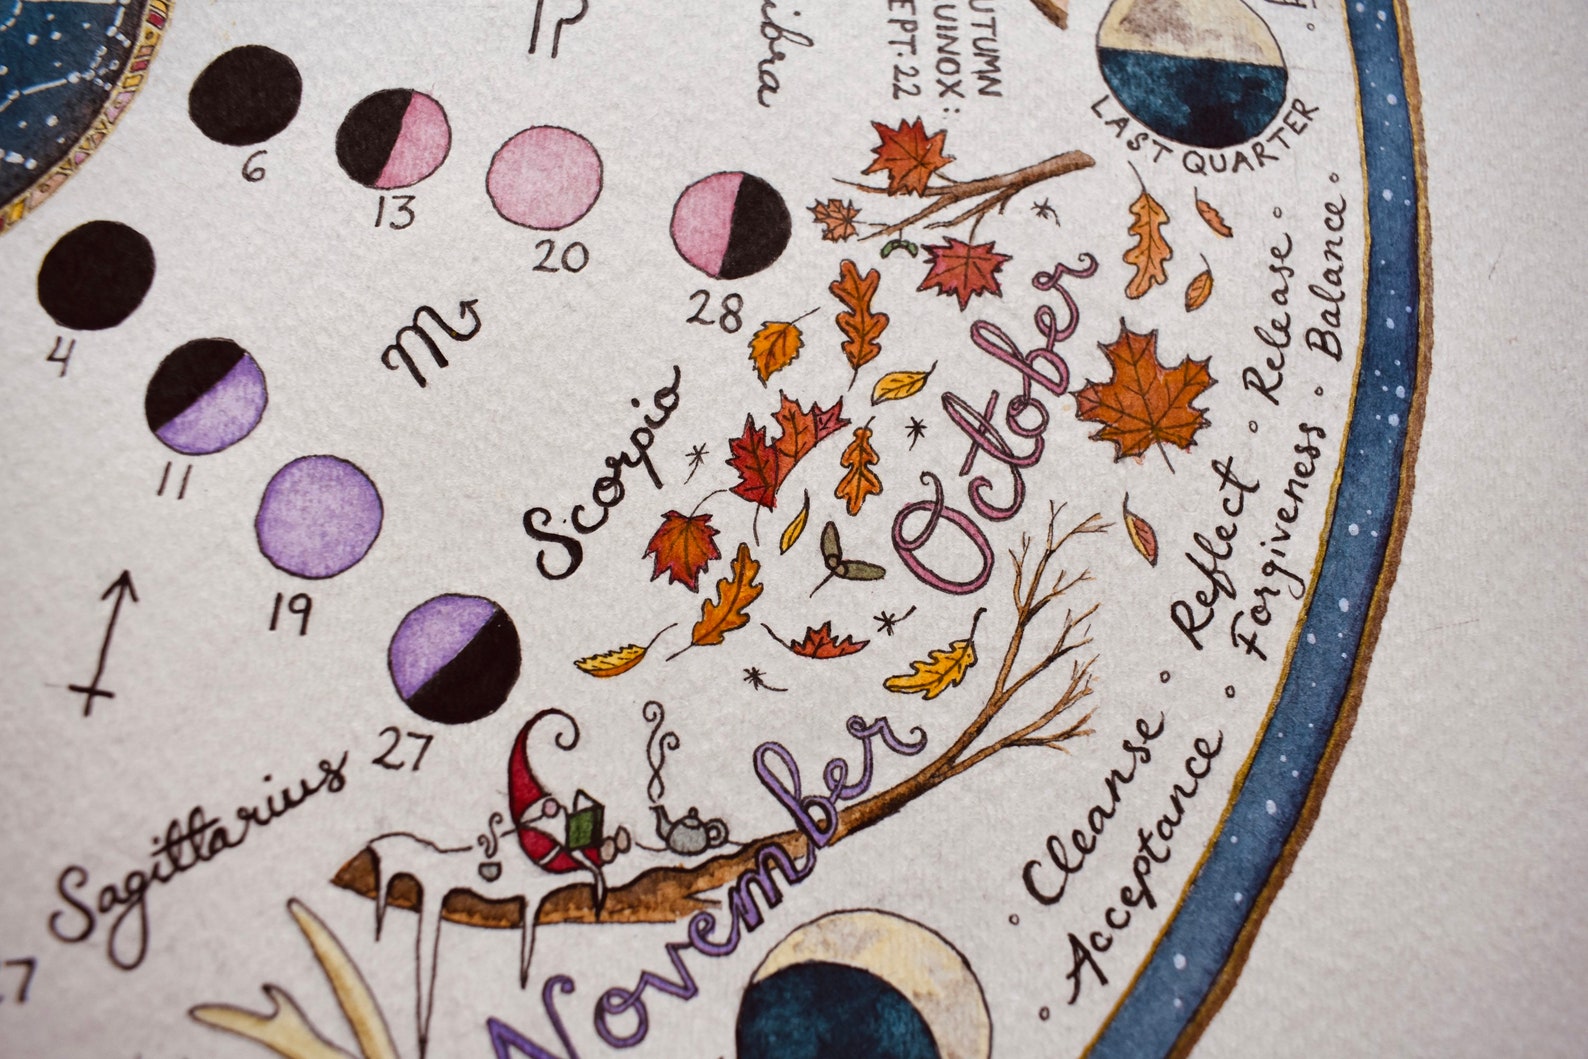 ibra
UTUMN
UINOX:
EPT. 22
LAST QUARTER
6
13
20
28
October
◦ Reflect ◦ Release ◦
Forgiveness ◦ Balance ◦
Scorpio
4
11
19
27
November
◦ Cleanse ◦
◦ Acceptance ◦
Sagittarius
7